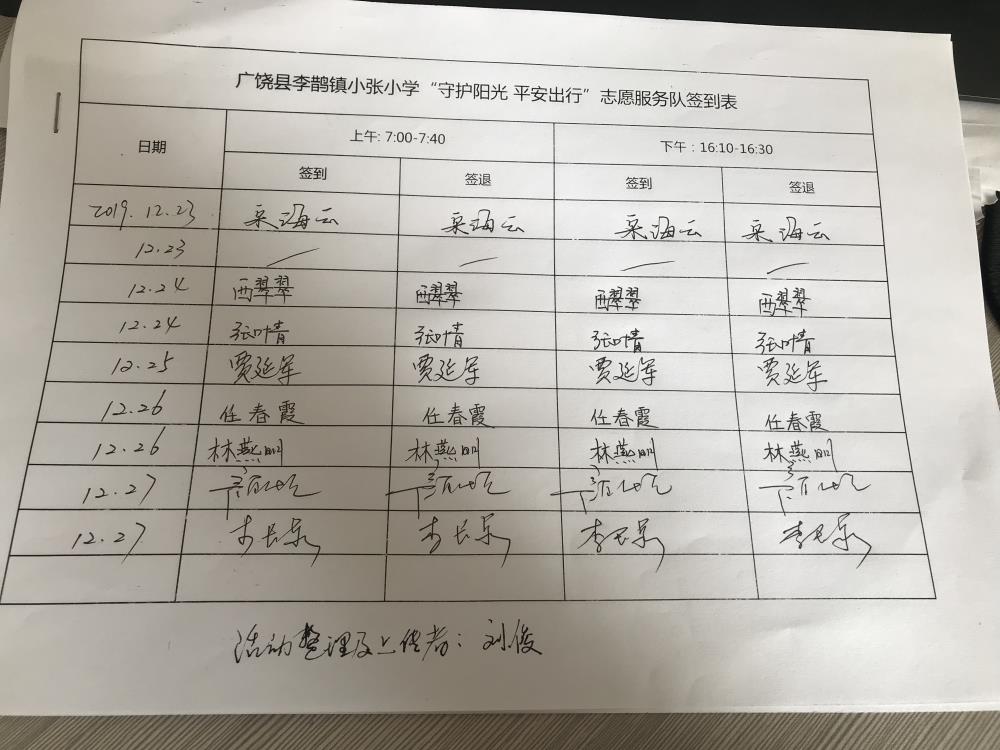 广饶县李鹊镇小张小学“守护阳光 平安出行”志愿服务队签到表
日期 上午: 7:00-7:40 下午：16:10-16:30
签到 签退 签到 签退
2019.12.23 海云 海云 海云 海云
12.23
12.24 西翠翠 西翠翠 西翠翠 西翠翠
12.24 张叶青 张叶青 张叶青 张叶青
12.25 贾延军 贾延军 贾延军 贾延军
12.26 任春霞 任春霞 任春霞 任春霞
12.26 林燕 林燕 林燕 林燕
12.27
12.27 李长 李长 李长 李长
活动整理及上传者：刘俊